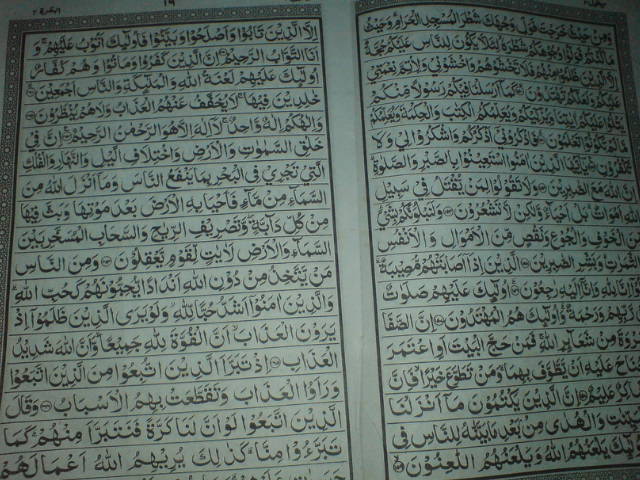 وَمِنْ حَيْثُ خَرَجْتَ فَوَلِّ وَجْهَكَ شَطْرَ الْمَسْجِدِ الْحَرَامِ وَحَيْثُ
مَا كُنْتُمْ فَوَلُّوْا وُجُوْهَكُمْ شَطْرَهٗ لِئَلَّا يَكُوْنَ لِلنَّاسِ عَلَيْكُمْ حُجَّةٌ
اِلَّا الَّذِيْنَ ظَلَمُوْا مِنْهُمْ فَلَا تَخْشَوْهُمْ وَاخْشَوْنِيْ وَلِاُتِمَّ نِعْمَتِيْ
عَلَيْكُمْ وَلَعَلَّكُمْ تَهْتَدُوْنَ كَمَا اَرْسَلْنَا فِيْكُمْ رَسُوْلًا مِّنْكُمْ
يَتْلُوْا عَلَيْكُمْ اٰيٰتِنَا وَيُزَكِّيْكُمْ وَيُعَلِّمُكُمُ الْكِتٰبَ وَالْحِكْمَةَ وَيُعَلِّمُكُمْ
مَّا لَمْ تَكُوْنُوْا تَعْلَمُوْنَ فَاذْكُرُوْنِيْ اَذْكُرْكُمْ وَاشْكُرُوْا لِيْ وَلَا
تَكْفُرُوْنِ يٰٓاَيُّهَا الَّذِيْنَ اٰمَنُوا اسْتَعِيْنُوْا بِالصَّبْرِ وَالصَّلٰوةِ
اِنَّ اللّٰهَ مَعَ الصّٰبِرِيْنَ وَلَا تَقُوْلُوْا لِمَنْ يُّقْتَلُ فِيْ سَبِيْلِ
اللّٰهِ اَمْوَاتٌ بَلْ اَحْيَآءٌ وَّلٰكِنْ لَّا تَشْعُرُوْنَ وَلَنَبْلُوَنَّكُمْ بِشَيْءٍ
مِّنَ الْخَوْفِ وَالْجُوْعِ وَنَقْصٍ مِّنَ الْاَمْوَالِ وَالْاَنْفُسِ
وَالثَّمَرٰتِ وَبَشِّرِ الصّٰبِرِيْنَ الَّذِيْنَ اِذَآ اَصَابَتْهُمْ مُّصِيْبَةٌ
قَالُوْٓا اِنَّا لِلّٰهِ وَاِنَّآ اِلَيْهِ رٰجِعُوْنَ اُولٰٓئِكَ عَلَيْهِمْ صَلَوٰتٌ
مِّنْ رَّبِّهِمْ وَرَحْمَةٌ وَاُولٰٓئِكَ هُمُ الْمُهْتَدُوْنَ اِنَّ الصَّفَا
وَالْمَرْوَةَ مِنْ شَعَآئِرِ اللّٰهِ فَمَنْ حَجَّ الْبَيْتَ اَوِ اعْتَمَرَ
فَلَا جُنَاحَ عَلَيْهِ اَنْ يَّطَّوَّفَ بِهِمَا وَمَنْ تَطَوَّعَ خَيْرًا فَاِنَّ
اللّٰهَ شَاكِرٌ عَلِيْمٌ اِنَّ الَّذِيْنَ يَكْتُمُوْنَ مَآ اَنْزَلْنَا
مِنَ الْبَيِّنٰتِ وَالْهُدٰى مِنْۢ بَعْدِ مَا بَيَّنّٰهُ لِلنَّاسِ فِي
الْكِتٰبِ اُولٰٓئِكَ يَلْعَنُهُمُ اللّٰهُ وَيَلْعَنُهُمُ اللّٰعِنُوْنَ
١٩
اِلَّا الَّذِيْنَ تَابُوْا وَاَصْلَحُوْا وَبَيَّنُوْا فَاُولٰٓئِكَ اَتُوْبُ عَلَيْهِمْ وَ
اَنَا التَّوَّابُ الرَّحِيْمُ اِنَّ الَّذِيْنَ كَفَرُوْا وَمَاتُوْا وَهُمْ كُفَّارٌ
اُولٰٓئِكَ عَلَيْهِمْ لَعْنَةُ اللّٰهِ وَالْمَلٰٓئِكَةِ وَالنَّاسِ اَجْمَعِيْنَ
خٰلِدِيْنَ فِيْهَا لَا يُخَفَّفُ عَنْهُمُ الْعَذَابُ وَلَا هُمْ يُنْظَرُوْنَ
وَاِلٰهُكُمْ اِلٰهٌ وَّاحِدٌ لَآ اِلٰهَ اِلَّا هُوَ الرَّحْمٰنُ الرَّحِيْمُ اِنَّ فِيْ
خَلْقِ السَّمٰوٰتِ وَالْاَرْضِ وَاخْتِلَافِ الَّيْلِ وَالنَّهَارِ وَالْفُلْكِ
الَّتِيْ تَجْرِيْ فِي الْبَحْرِ بِمَا يَنْفَعُ النَّاسَ وَمَآ اَنْزَلَ اللّٰهُ مِنَ
السَّمَآءِ مِنْ مَّآءٍ فَاَحْيَا بِهِ الْاَرْضَ بَعْدَ مَوْتِهَا وَبَثَّ فِيْهَا
مِنْ كُلِّ دَآبَّةٍ وَّتَصْرِيْفِ الرِّيٰحِ وَالسَّحَابِ الْمُسَخَّرِ بَيْنَ
السَّمَآءِ وَالْاَرْضِ لَاٰيٰتٍ لِّقَوْمٍ يَّعْقِلُوْنَ وَمِنَ النَّاسِ
مَنْ يَّتَّخِذُ مِنْ دُوْنِ اللّٰهِ اَنْدَادًا يُّحِبُّوْنَهُمْ كَحُبِّ اللّٰهِ
وَالَّذِيْنَ اٰمَنُوْٓا اَشَدُّ حُبًّا لِّلّٰهِ وَلَوْ يَرَى الَّذِيْنَ ظَلَمُوْٓا اِذْ
يَرَوْنَ الْعَذَابَ اَنَّ الْقُوَّةَ لِلّٰهِ جَمِيْعًا وَّاَنَّ اللّٰهَ شَدِيْدُ
الْعَذَابِ اِذْ تَبَرَّاَ الَّذِيْنَ اتُّبِعُوْا مِنَ الَّذِيْنَ اتَّبَعُوْا
وَرَاَوُا الْعَذَابَ وَتَقَطَّعَتْ بِهِمُ الْاَسْبَابُ وَقَالَ
الَّذِيْنَ اتَّبَعُوْا لَوْ اَنَّ لَنَا كَرَّةً فَنَتَبَرَّاَ مِنْهُمْ كَمَا
تَبَرَّءُوْا مِنَّا كَذٰلِكَ يُرِيْهِمُ اللّٰهُ اَعْمَالَهُمْ